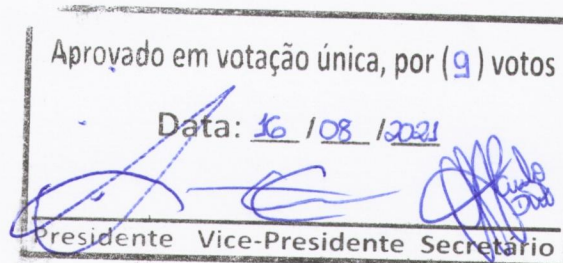 Aprovado em votação única, por (9) votos
Data: 16 /08 /2021
Presidente Vice-Presidente Secretário